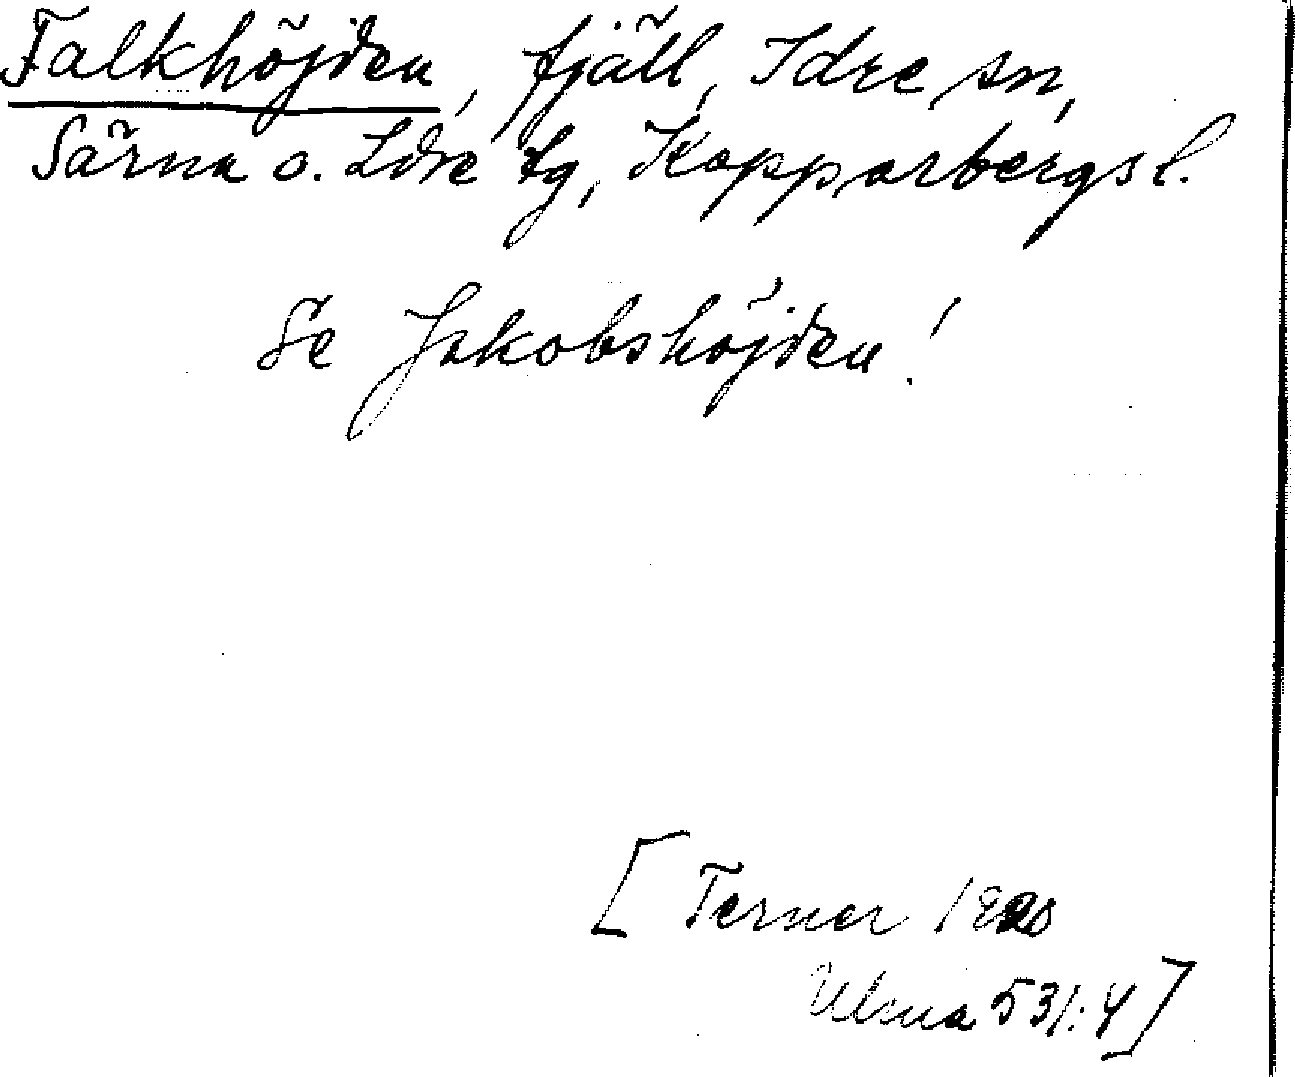 Falkhöjden, fjäll, Idre sn,
Särna o. Idre tg, Kopparbergs l.
Se Jakobshöjden!
[Terner 1920
Ulma 531:4]